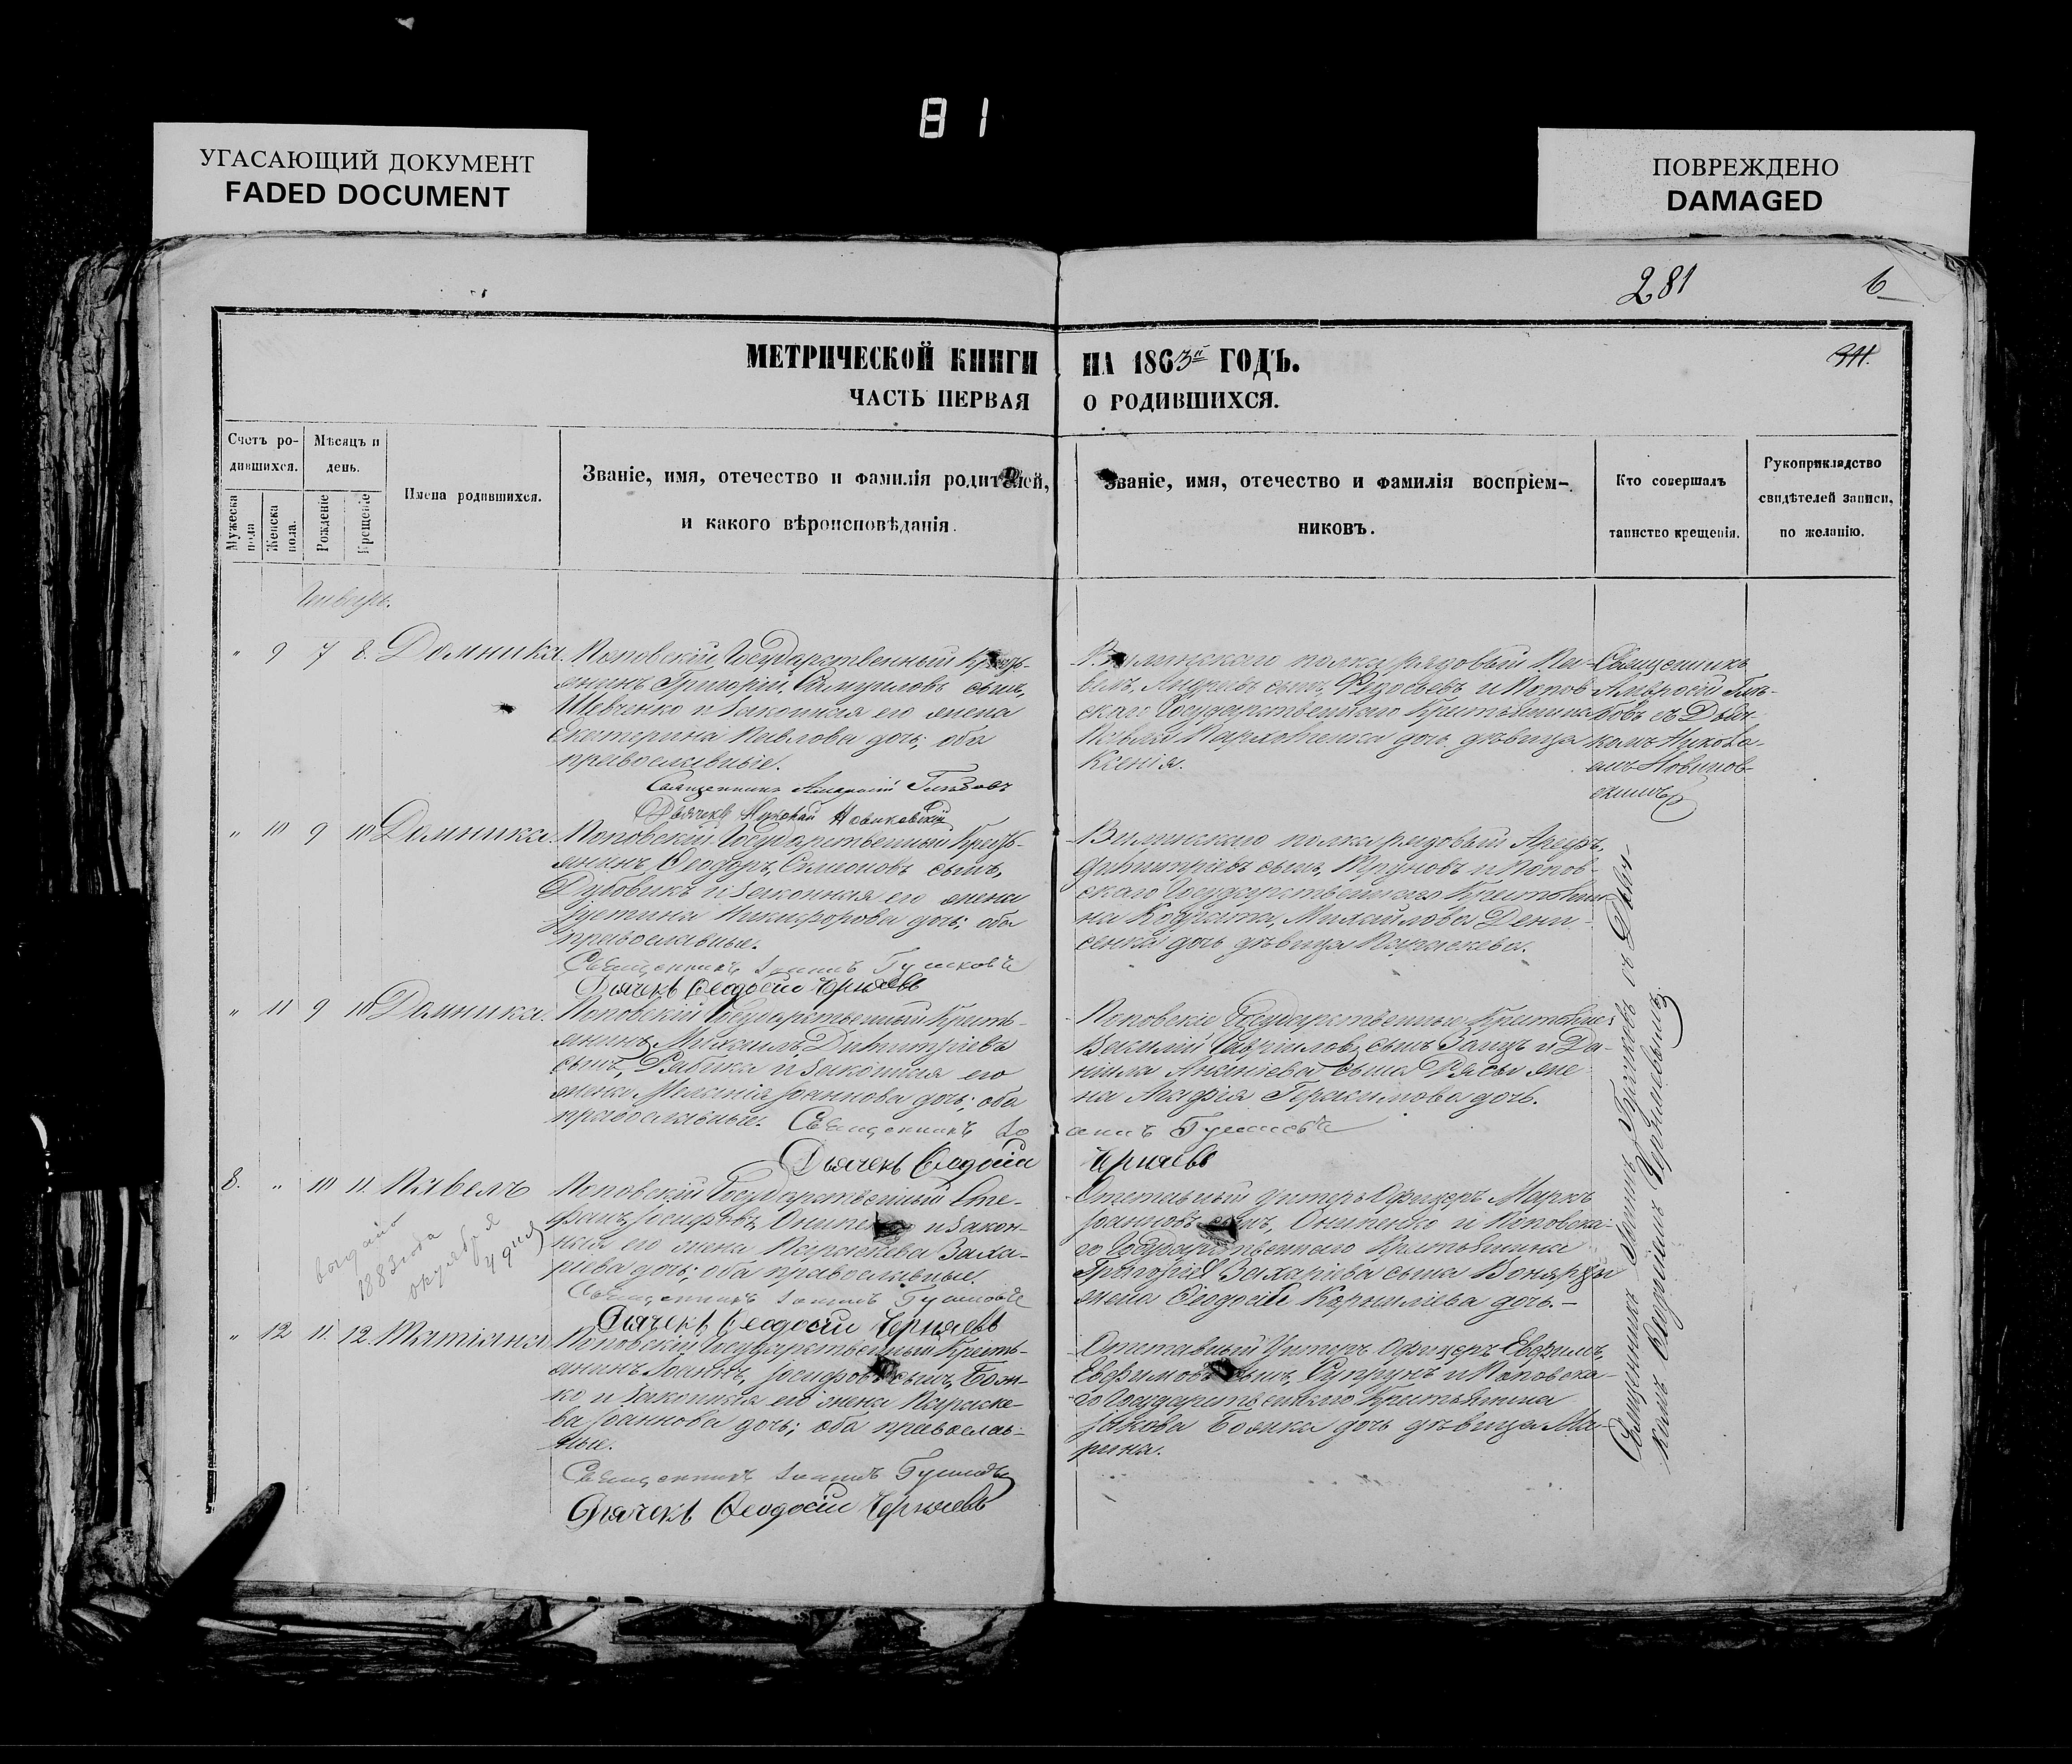 81
УГАСАЮЩИЙ ДОКУМЕНТ
FADED DOCUMENT
ПОВРЕЖДЕНО
DAMAGED
281
6
МЕТРИЧЕСКОЙ КНИГИ НА 1863й ГОДЪ.
ЧАСТЬ ПЕРВАЯ О РОДИВШИХСЯ.
Счетъ ро-
дившихся.
Мужеска пола
Женска пола.
Мѣсяцъ и
день.
Рожденіе
Крещеніе
Имена родившихся.
Званіе, имя, отечество и фамилія родителей,
и какого вѣроисповѣданія.
Званіе, имя, отечество и фамилія воспріем-
никовъ.
Кто совершалъ
таинство крещенія.
Рукоприкладство
свидѣтелей записи,
по желанію.
Генварь.
" 9 7 8. Домника.
Поповскій Государственный Кресть-
янинъ Григорій, Самуиловъ сынъ,
Шевченко и законная его жена
Екатерина Павлова дочь; оба
православные.
Священникъ Амвросій
Дьячекъ Николай Новиковскій
полка рядовый Па-
велъ, Андреевъ сынъ, Федосьевъ и Попов
скаго Государственнаго Крестьянина
Павла дочь дѣвица
Ксенія.
Священникъ
Амвросій
съ Дьяч-
комъ Никола-
емъ Новиков-
скимъ
" 10 9 10 Домника.
Поповскій Государственный Кресть-
янинъ, Феодоръ, Симеоновъ сынъ,
Дудовикъ и законная его жена
Іустина Никифорова дочь; оба
православные.
Священникъ Іоаннъ
Дьячекъ Феодосій Черняевъ
полка рядовый
Димитріевъ сынъ, и Попов-
скаго Государственнаго Крестьяни
на Кодрата, Михайлова Дени-
сенка дочь дѣвица Параскева.
" 11 9 10 Домника.
Поповскій Государственный Кресть-
янинъ Михаилъ, Димитріева
сынъ, Рябика и законная его
жена Меланія Іоаннова дочь; оба
православные. Священникъ Іо
аннъ
Дьячекъ Феодосій
Черняевъ
Поповскіе Государственные Крестьяне:
Василій Гавріиловъ сынъ Заяцъ и Да-
ніила Ананіева сына жe-
на Агафія Герасимова дочь.
8. " 10 11. Павелъ
выданъ
1883 года
октября
4 дня
Поповскій Государственный Сте-
фанъ, Іосифовъ, Онипенко и закон-
ная его жена Параскева Заха-
ріева дочь; оба православные.
Священникъ Іоаннъ
Дьячекъ Феодосій Черняевъ
Отставный Унтеръ Офицеръ Марко
Іоанновъ сынъ, Онипенко и Поповска-
го Государственнаго Крестьянина
Григорія Захаріева сына
жена Феодосія Корнилієва дочь.-
" 12 11. 12. Татіана
Поповскій Государственный Кресть-
янинъ Іоаннъ, Іосифовъ сынъ, Бож-
ко и законная его жена Параске-
ва Іоаннова дочь; оба православ-
ные.
Священникъ Іоаннъ
Дьячекъ Феодосій Черняевъ
Отставный Унтеръ Офицеръ Евфимъ,
Евфимовъ сынъ, Супрунъ и Поповска-
го Государственнаго Крестьянина
Іакова Божка дочь дѣвица Ма-
рина.
Священникъ Іоаннъ съ Дьяч-
комъ Феодосіемъ Черняевымъ.